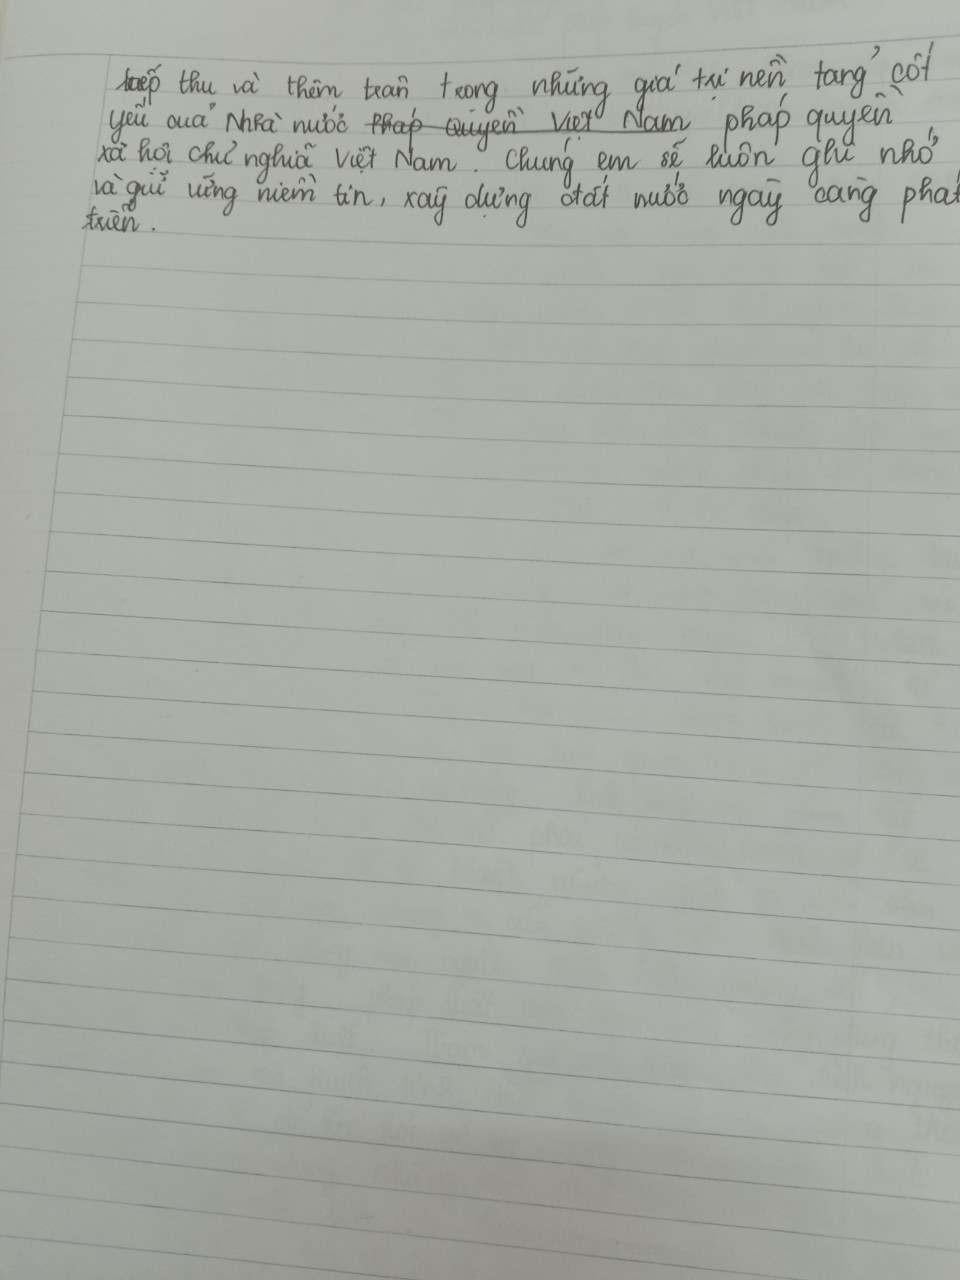 tiếp thu và thêm trân trọng những giá trị nền tảng cốt
yếu của Nhà nước pháp quyền Việt Nam pháp quyền
xã hội chủ nghĩa Việt Nam. Chúng em sẽ luôn ghi nhớ
và giữ vững niềm tin, xây dựng đất nước ngày càng phát
triển.